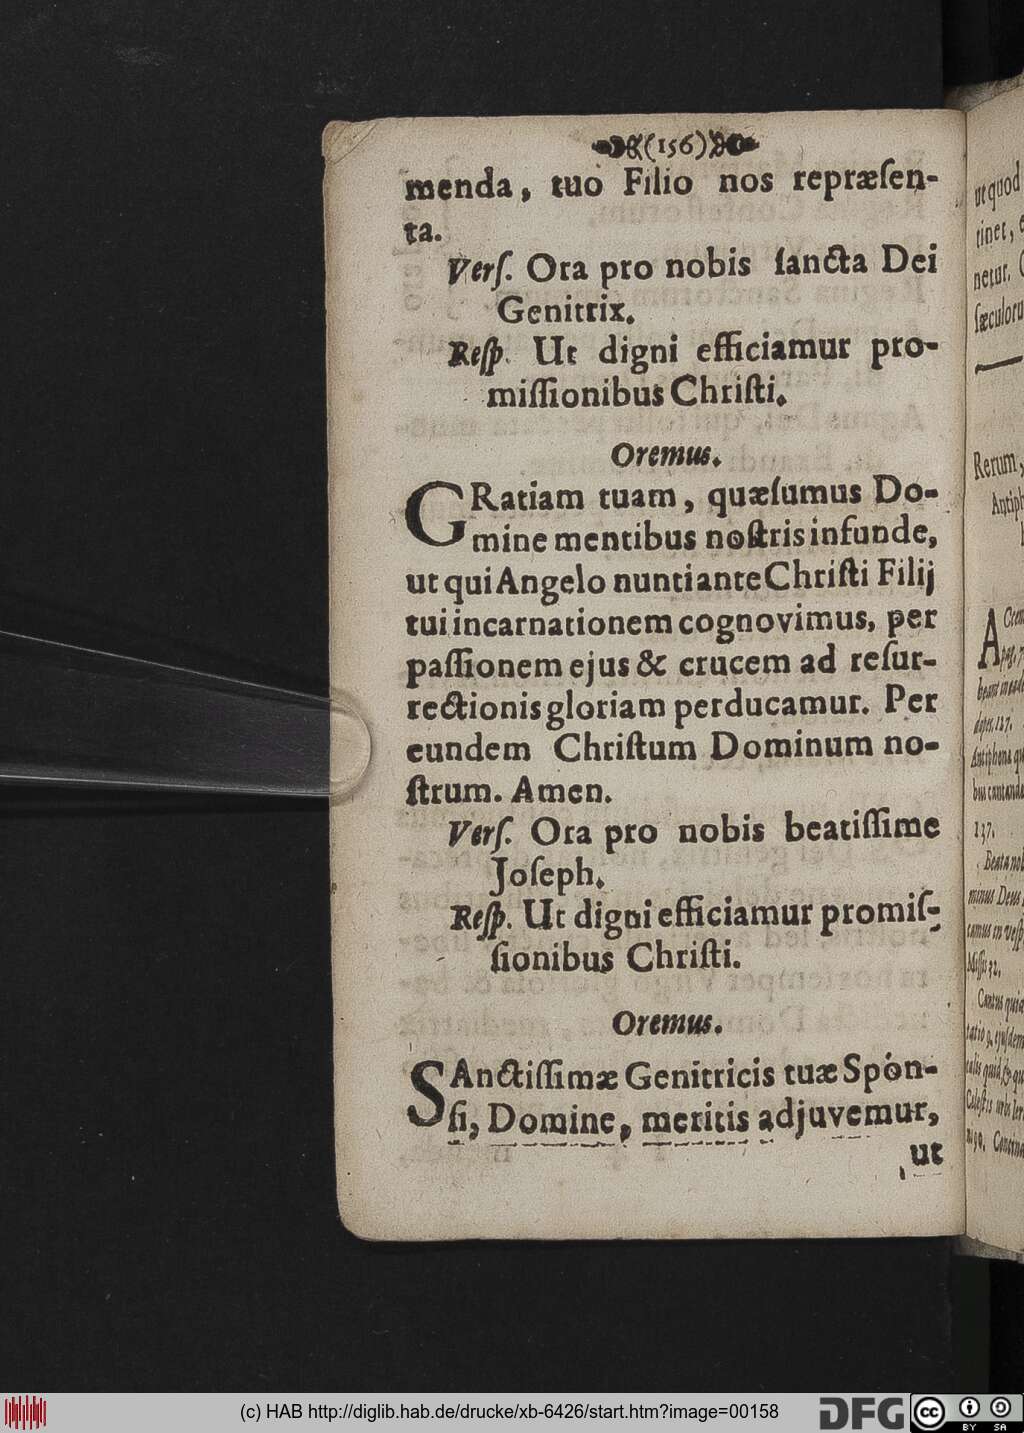 (156)
menda, tuo Filio nos repræſen-
ta.
Verſ. Ora pro nobis ſancta Dei
Genitrix.
Reſp. Ut digni efficiamur pro-
miſſionibus Chriſti.
Oremus.
GRatiam tuam, quæſumus Do-
mine mentibus noſtris infunde,
ut qui Angelo nuntiante Chriſti Filij
tui incarnationem cognovimus, per
paſſionem ejus & crucem ad reſur-
rectionis gloriam perducamur. Per
eundem Chriſtum Dominum no-
ſtrum. Amen.
Verſ. Ora pro nobis beatiſſime
Joſeph.
Reſp. Ut digni efficiamur promiſ-
ſionibus Chriſti.
Oremus.
SAnctiſſimæ Genitricis tuæ Spon-
ſi, Domine, meritis adjuvemur,
ut
ut quod
tinet,
netur.
ſæculoru
Rerum,
Antiph
pag.
dapes. 127.
Antiphona
bus cantanda
137.
Beata nob
minus Deus
camus in veſp
Miſſis 32.
Cantus quia
tatio 9. ejuſdem
talis quid, & qu
Cæleſtis urbs Ier
(c) HAB http://diglib.hab.de/drucke/xb-6426/start.htm?image=00158
DFG
cc
BY SA